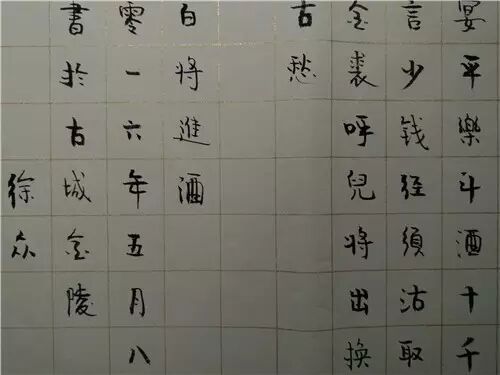 宴平樂斗酒十千
言少钱径須沽取
金裘呼兒将出换
古愁
白将進酒
零一六年五月八
書於古城金陵
徐众